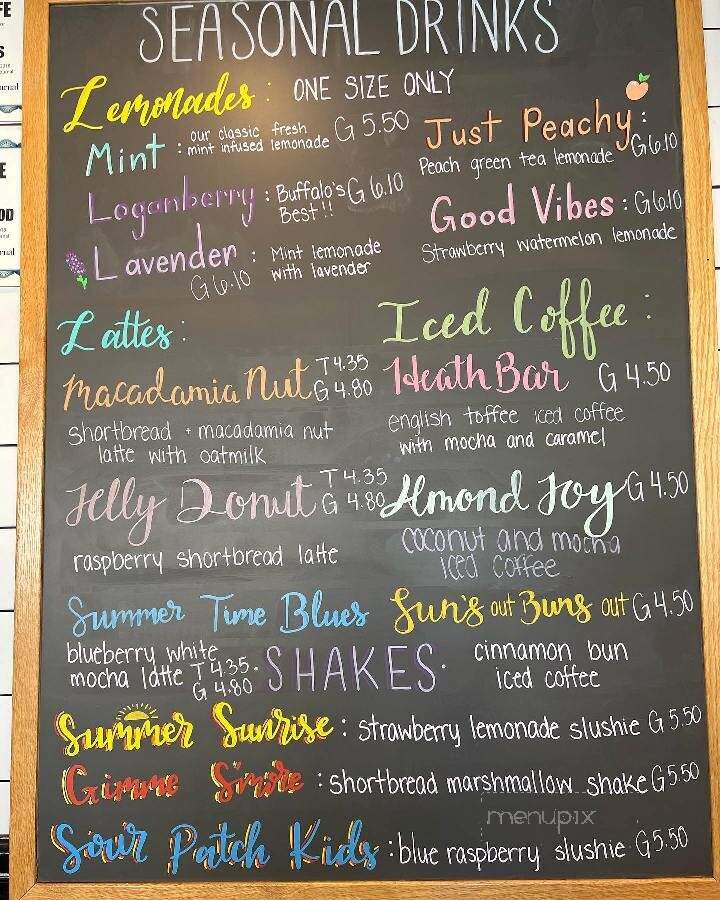 SEASONAL DRINKS
Lemonades: ONE SIZE ONLY
Mint : our classic fresh mint infused lemonade G 5.50
Loganberry : Buffalo's Best!! G 6.10
Lavender : Mint lemonade with lavender
G 6.10
Just Peachy : G 6.10
Peach green tea lemonade
Good Vibes : G 6.10
Strawberry watermelon lemonade
Lattes:
Macadamia Nut T 4.35
G 4.80
shortbread + macadamia nut
latte with oatmilk
Jelly Donut T 4.35
G 4.80
raspberry shortbread latte
Summer Time Blues
blueberry white
mocha latte T 4.35
G 4.80
Iced Coffee:
Heath Bar G 4.50
english toffee iced coffee
with mocha and caramel
Almond Joy G 4.50
coconut and mocha
iced coffee
Sun's out Buns out G 4.50
cinnamon bun
iced coffee
·SHAKES·
Summer Sunrise : strawberry lemonade slushie G 5.50
Gimme S'more : shortbread marshmallow shake G 5.50
menupix
Sour Patch Kids : blue raspberry slushie G 5.50